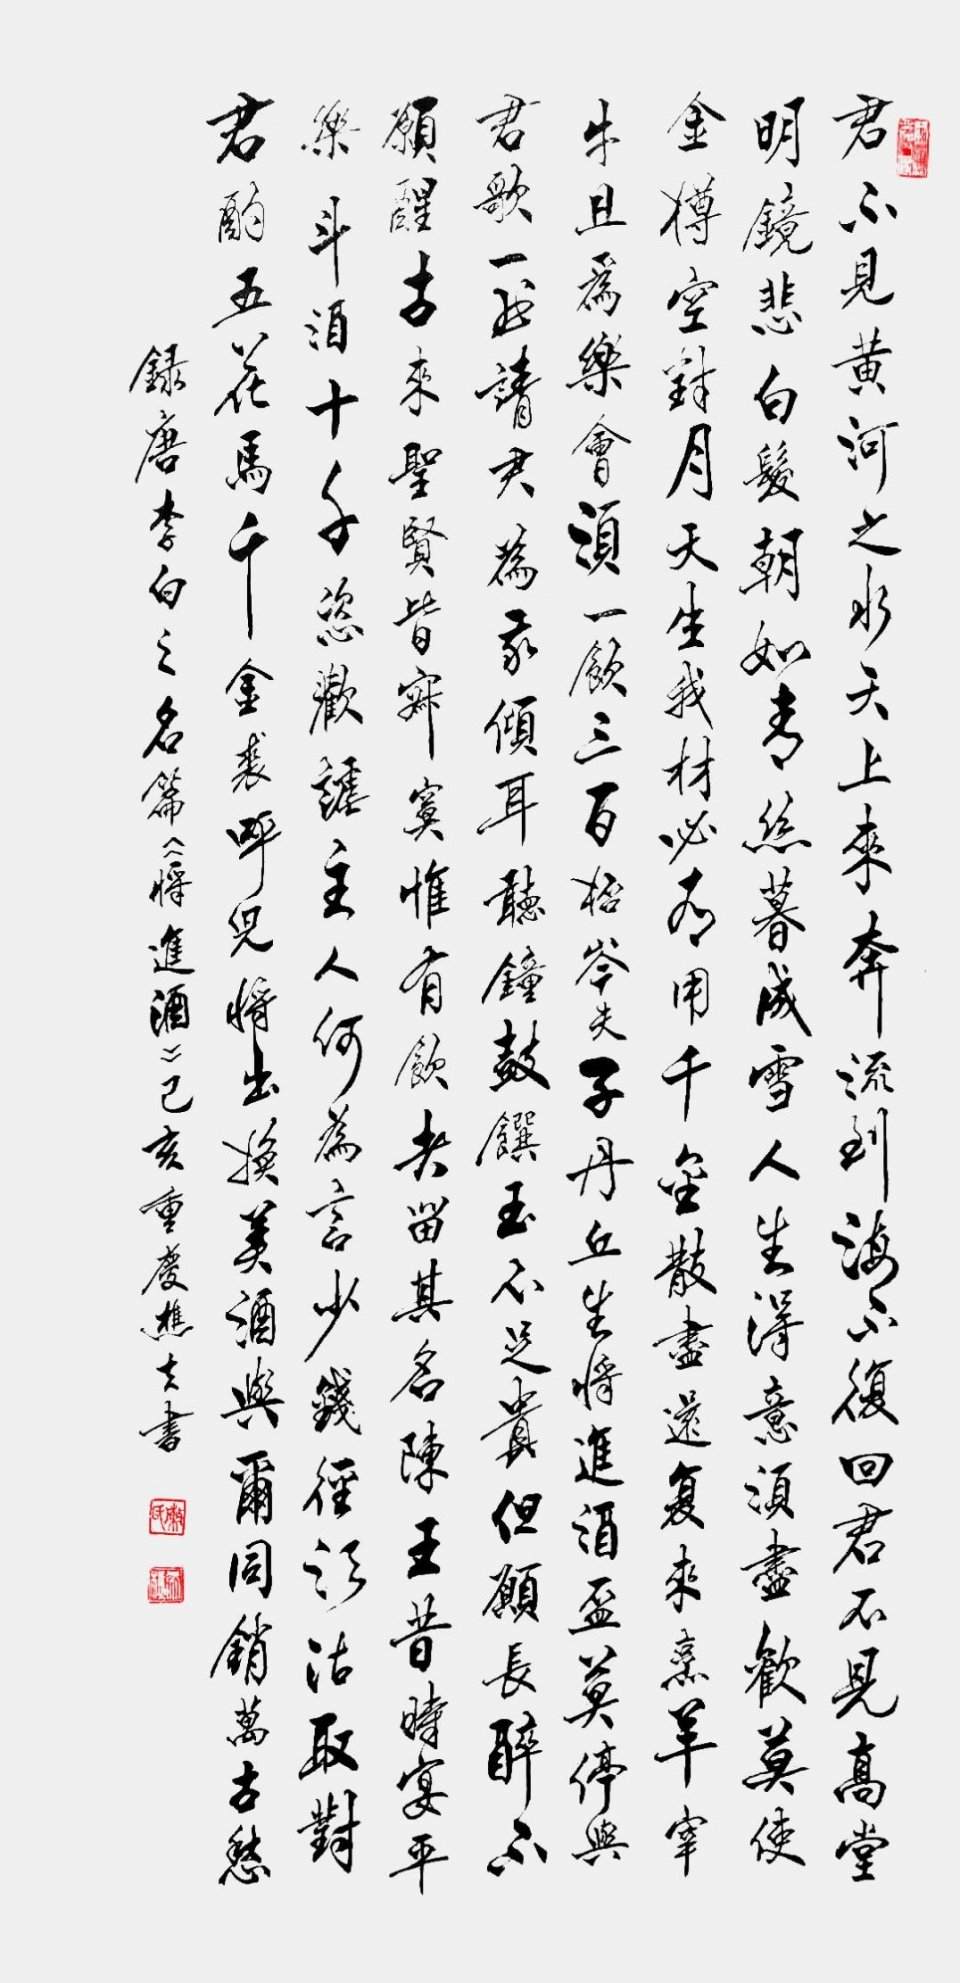 君不見黃河之水天上來奔流到海不復回君不見高堂
明鏡悲白髮朝如青絲暮成雪人生得意須盡歡莫使
金樽空對月天生我材必有用千金散盡還复來烹羊宰
牛且為樂會須一飲三百杯岑夫子丹丘生將進酒盃莫停與
君歌一曲請君為我傾耳聽鐘鼓饌玉不足貴但願長醉不
願醒古來聖賢皆寂寞惟有飲者留其名陳王昔時宴平
樂斗酒十千恣歡謔主人何為言少錢徑須沽取對
君酌五花馬千金裘呼兒將出換美酒與爾同銷萬古愁
錄唐李白之名篇《將進酒》己亥重慶樵夫書